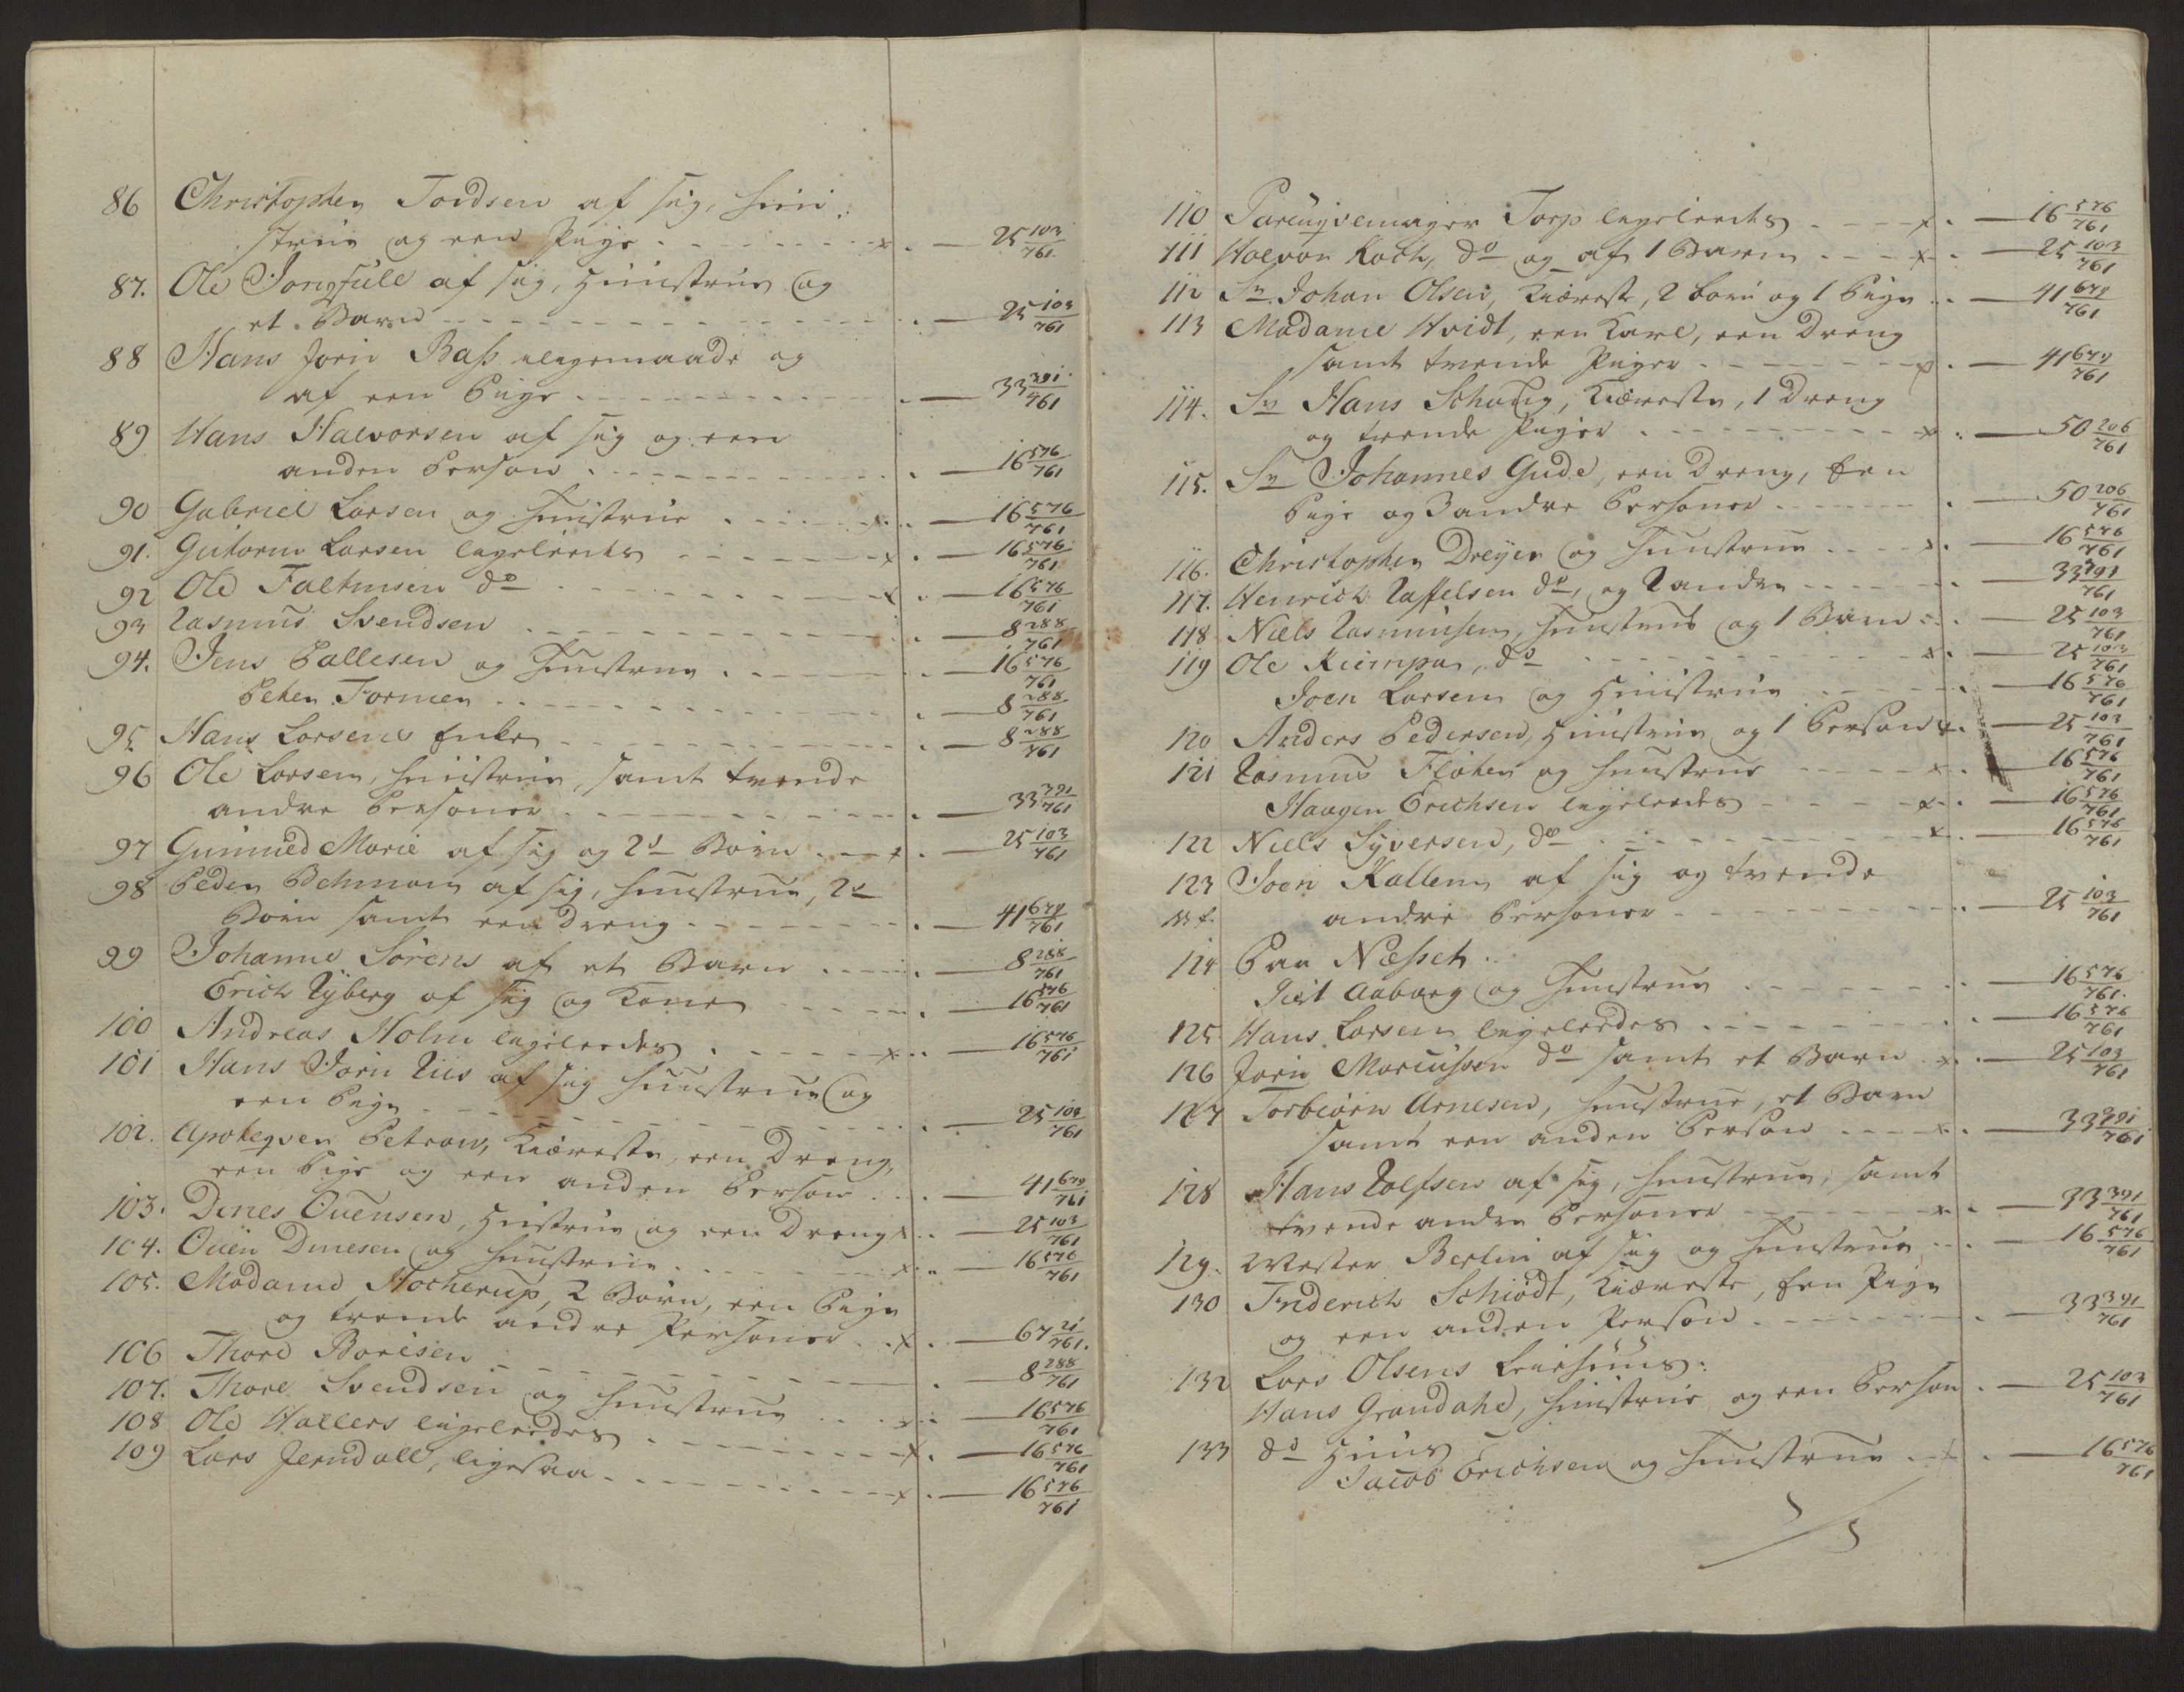 86 Christopher Tordsen af sig, huu:
strue og een Piige . — 25 103/761
87. Ole Jongsule af sig, Huustrue og
et Barn . — 25 103/761
88 Hans Jorn Baß aligemaade og
af een Piige . — 33 391/761
89 Hans Halvorsen af sig og een
anden Person . — 16 576/761
90 Gabriel Larsen og Huustrue . — 16 576/761
91. Gutorm Larsen ligeleedes x . — 16 576/761
92 Ole Faltinsen do x . — 16 576/761
93 Rasmus Svendsen . — 8 288/761
94. Jens Pallesen og Huustrue . — 16 576/761
Peter Former . — 8 288/761
95 Hans Larsens Enke . — 8 288/761
96 Ole Larsen, Huustrue, samt tvende
andre Personer . — 33 391/761
97 Gunnild Marie af sig og 2de Børn x . — 25 103/761
98 Peder Behmann af sig, Huustrue, 2de
Børn samt een Dreng . — 41 679/761
99 Johanne Sørens af et Barn . — 8 288/761
Erich Nyberg af sig og Kone . — 16 576/761
100 Andreas Holm ligeleedes x . — 16 576/761
101 Hans Jørn Riis af sig Huustrue og
een Piige . — 25 103/761
102. Apoteqver Petrow, Kiæreste, een Dreng,
een Piige og een anden Person . — 41 679/761
103. Dines Ouensen, Huustrue og een Dreng x . — 25 103/761
104. Ouen Dinesen og Huustrue x . — 16 576/761
105. Madame Stocherup, 2 Børn, een Piige
og trende andre Personer x . — 67 21/761.
106 Thore Boresen . — 8 288/761
107. Thore Svendsen og Huustrue x . — 16 576/761
108 Ole Hallers ligeleedes x . — 16 576/761
109 Lars Jerndall, ligesaa x . — 16 576/761
110 Paruqvemager Torp ligeleedes x . — 16 576/761
111 Halvor Koch, do og af 1 Barn x . — 25 103/761
112 Sr. Johan Olsen, Kiæreste, 2 børn og 1 Piige . — 41 679/761
113 Madame Hvidt, een Karl, een Dreng
samt tvende Piiger x . — 41 679/761
114. Sr Hans Schouig, Kiæreste, 1 Dreng
og trende Piiger x . — 50 206/761
115. Sr Johannes Gude, een Dreng, Een
Piige og 3 andre Personer . — 50 206/761
116. Christopher Dreyer og Huustrue x . — 16 576/761
117. Henrich Raffelsen do, og 2 andre . — 33 391/761
118 Niels Rasmussen, Huustrue og 1 Barn . — 25 103/761
119 Ole Kiempa, do x . — 25 103/761
Joen Larsen og Huustrue . — 16 576/761
120 Anders Pedersen, Huustrue og 1 Person x . — 25 103/761
121 Rasmus Fløten og Huustrue x . — 16 576/761
Haagen Erichsen ligeleedes x . — 16 576/761
122 Niels Syversen, do x . — 16 576/761
123 Joen Kallem af sig og tvende
andre Personer . — 25 103/761
124 Paa Næsset.
Juel Aaborg og Huustrue . — 16 576/761.
125 Hans Larsen ligeleedes . — 16 576/761
126 Jørn Marcussen do samt et Barn x . — 25 103/761
127 Torbiørn Arnesen, Huustrue, et Barn
samt een anden Person x . — 33 391/761
128 Hans Rolfsen af sig, Huustrue, samt
tvende andre Personer x . — 33 391/761
129. Mester Berlin af sig og Huustrue . — 16 576/761
130 Friderich Schiødt, Kiæreste, Een Piige
og een anden Person . — 33 391/761
132 Lars Olsens Leiehuus:
Hans Grandahl, Huustrue og een Person . — 25 103/761
133 do Huus
Jacob Erichsen og Huustrue x . — 16 576/761